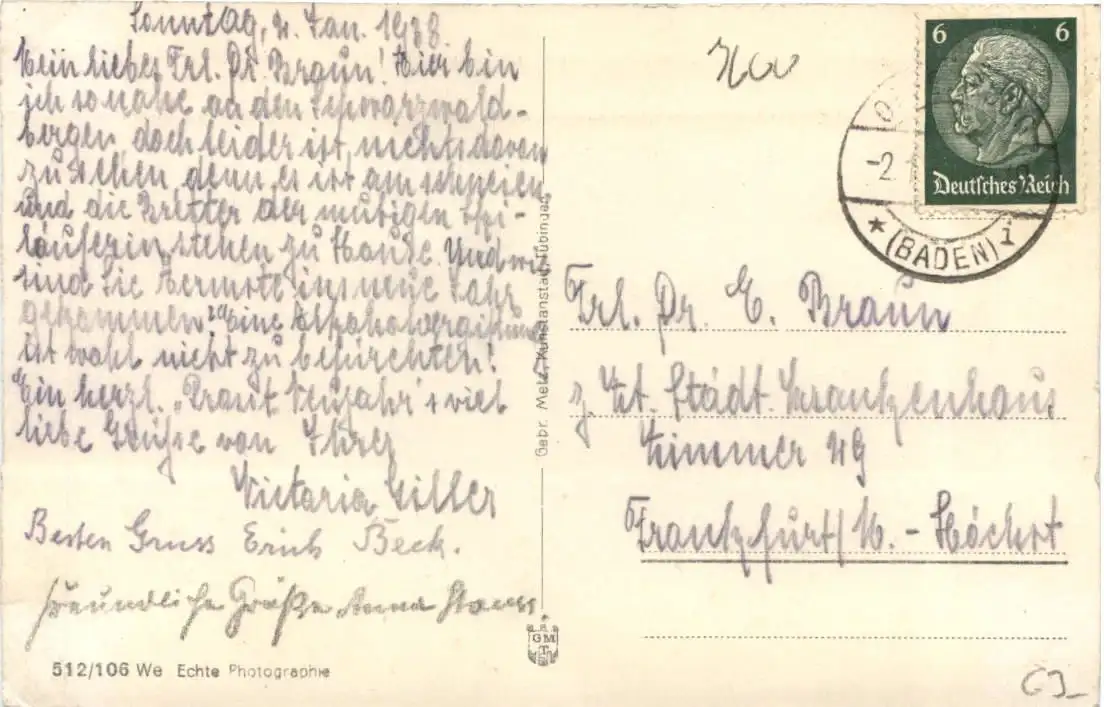 Sonntag, 2. Jan. 1938
Mein liebes Frl. Dr. Braun! Hier bin
ich so nahe an den Schwarzwald-
bergen doch leider ist nichts davon
zu sehen denn es ist am schneien
und die Bretter der mutigen Ski-
läuferin stehen zu Hause. Und wie
sind Sie ins neue Jahr
gekommen? Eine Alkoholvergiftung
ist wohl nicht zu befürchten!
Ein herzl. „Prosit Neujahr" + viel
liebe Grüsse von Ihrer
Victoria
Besten Gruss Erich Beck.
freundliche Grüße Anna
512/106 We Echte Photographie
Gebr. Metz, Kunstanstalt, Tübingen
GMT
6 6
Deutsches Reich
-2.
★ (BADEN) i
Frl. Dr. E. Braun
z. Zt. Städt. Krankenhaus
Zimmer 49
Frankfurt/M. - Höchst